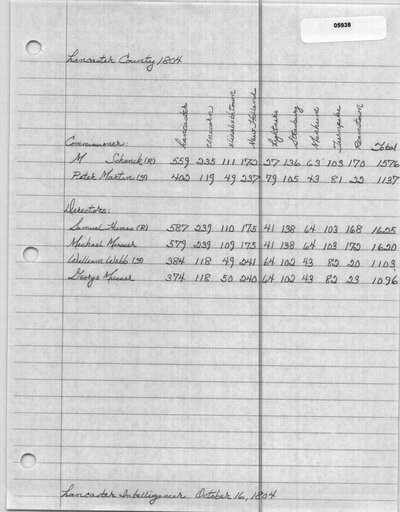 05938
Lancaster County 1804
Lancaster Unicorn Elizabethtown New Holland Lightners Strasburg Manheim Turnpike Reamstown
Commissioner: Total
M Schenck (R) 559 235 111 172 27 136 63 103 170 1576
Peter Martin (F) 402 119 49 237 79 105 43 81 22 1137
Directors:
Samuel Humes (R) 587 239 110 175 41 138 64 103 168 1625
Michael Musser 579 239 109 175 41 138 64 103 172 1620
William Webb (F) 384 118 49 241 64 102 43 82 20 1103
George Musser 374 118 50 240 64 102 43 82 23 1096
Lancaster Intelligencer. October 16, 1804